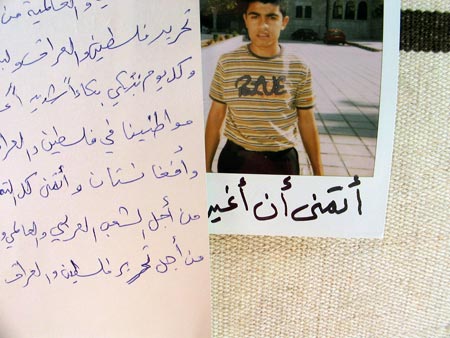 و العالمية من
تحرير فلسطين والعراق ولب
وكل يوم نبكي بكاءاً شديد
مواطنينا في فلسطين و العرا
وأفغانستان و أتمنى كل الت
من أجل الشعب العربي والعالمي و
من أجل تحرير فلسطين و العراق
RAVE
أتمنى أن أغير